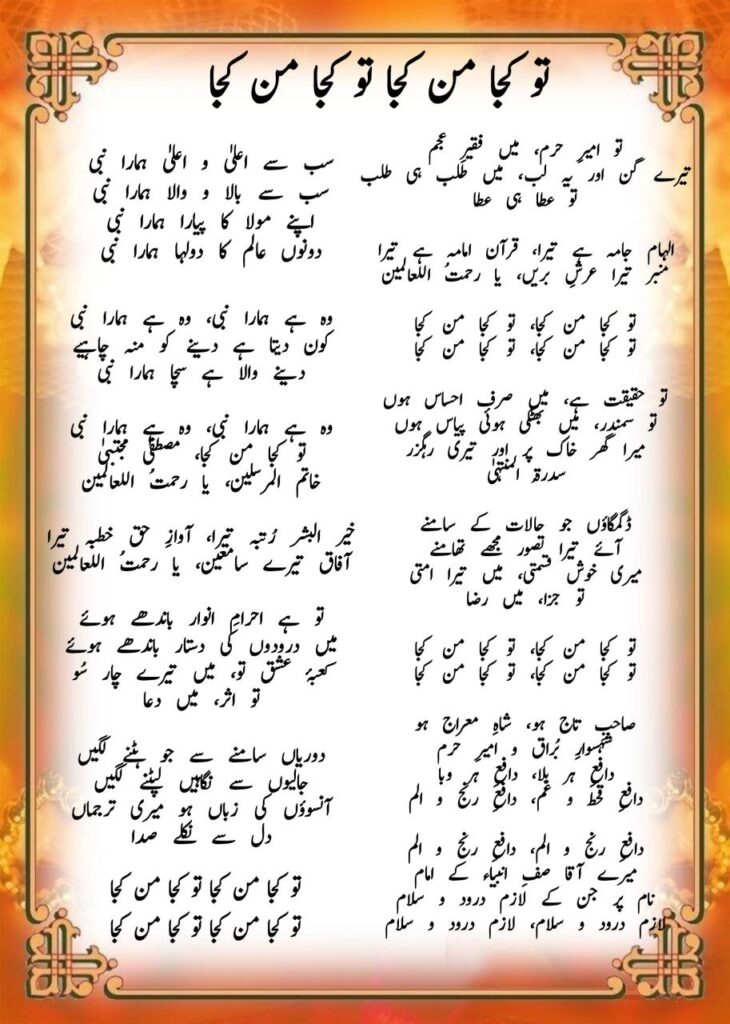 تو کجا من کجا تو کجا من کجا
تو امیرِ حرم، میں فقیرِ عجم
تیرے گن اور یہ لب، میں طلب ہی طلب
تو عطا ہی عطا
الہام جامہ ہے تیرا، قرآن امامہ ہے تیرا
منبر تیرا عرشِ بریں، یا رحمتُ اللعالمین
تو کجا من کجا، تو کجا من کجا
تو کجا من کجا، تو کجا من کجا
تو حقیقت ہے، میں صرف احساس ہوں
تو سمندر، میں بھٹکی ہوئی پیاس ہوں
میرا گھر خاک پر اور تیری رہگزر
سدرۃ المنتہیٰ
ڈگمگاؤں جو حالات کے سامنے
آئے تیرا تصور مجھے تھامنے
میری خوش قسمتی، میں تیرا امتی
تو جزا، میں رضا
تو کجا من کجا، تو کجا من کجا
تو کجا من کجا، تو کجا من کجا
صاحبِ تاج ہو، شاہِ معراج ہو
شہسوارِ بُراق و امیرِ حرم
دافعِ ہر بلا، دافعِ ہر وبا
دافعِ قحط و غم، دافعِ رنج و الم
دافعِ رنج و الم، دافعِ رنج و الم
میرے آقا صفِ انبیاء کے امام
نام پر جن کے لازم درود و سلام
لازم درود و سلام، لازم درود و سلام
سب سے اعلیٰ و اعلیٰ ہمارا نبی
سب سے بالا و والا ہمارا نبی
اپنے مولا کا پیارا ہمارا نبی
دونوں عالم کا دولہا ہمارا نبی
وہ ہے ہمارا نبی، وہ ہے ہمارا نبی
کون دیتا ہے دینے کو منہ چاہیے
دینے والا ہے سچا ہمارا نبی
وہ ہے ہمارا نبی، وہ ہے ہمارا نبی
تو کجا من کجا، مصطفیٰ مجتبیٰ
خاتم المرسلین، یا رحمتُ اللعالمین
خیر البشر رُتبہ تیرا، آوازِ حق خطبہ تیرا
آفاق تیرے سامعین، یا رحمتُ اللعالمین
تو ہے احرامِ انوار باندھے ہوئے
میں درودوں کی دستار باندھے ہوئے
کعبۂ عشق تو، میں تیرے چار سُو
تو اثر، میں دعا
دوریاں سامنے سے جو ہٹنے لگیں
جالیوں سے نگاہیں لپٹنے لگیں
آنسوؤں کی زباں ہو میری ترجماں
دل سے نکلے صدا
تو کجا من کجا تو کجا من کجا
تو کجا من کجا تو کجا من کجا